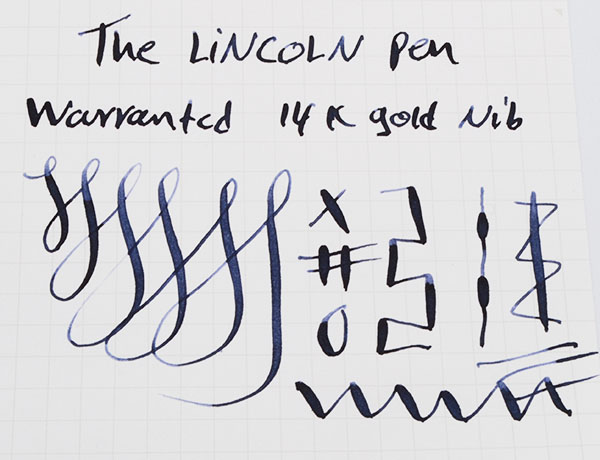 The LiNCOLN Pen
Warranted 14 K gold Nib